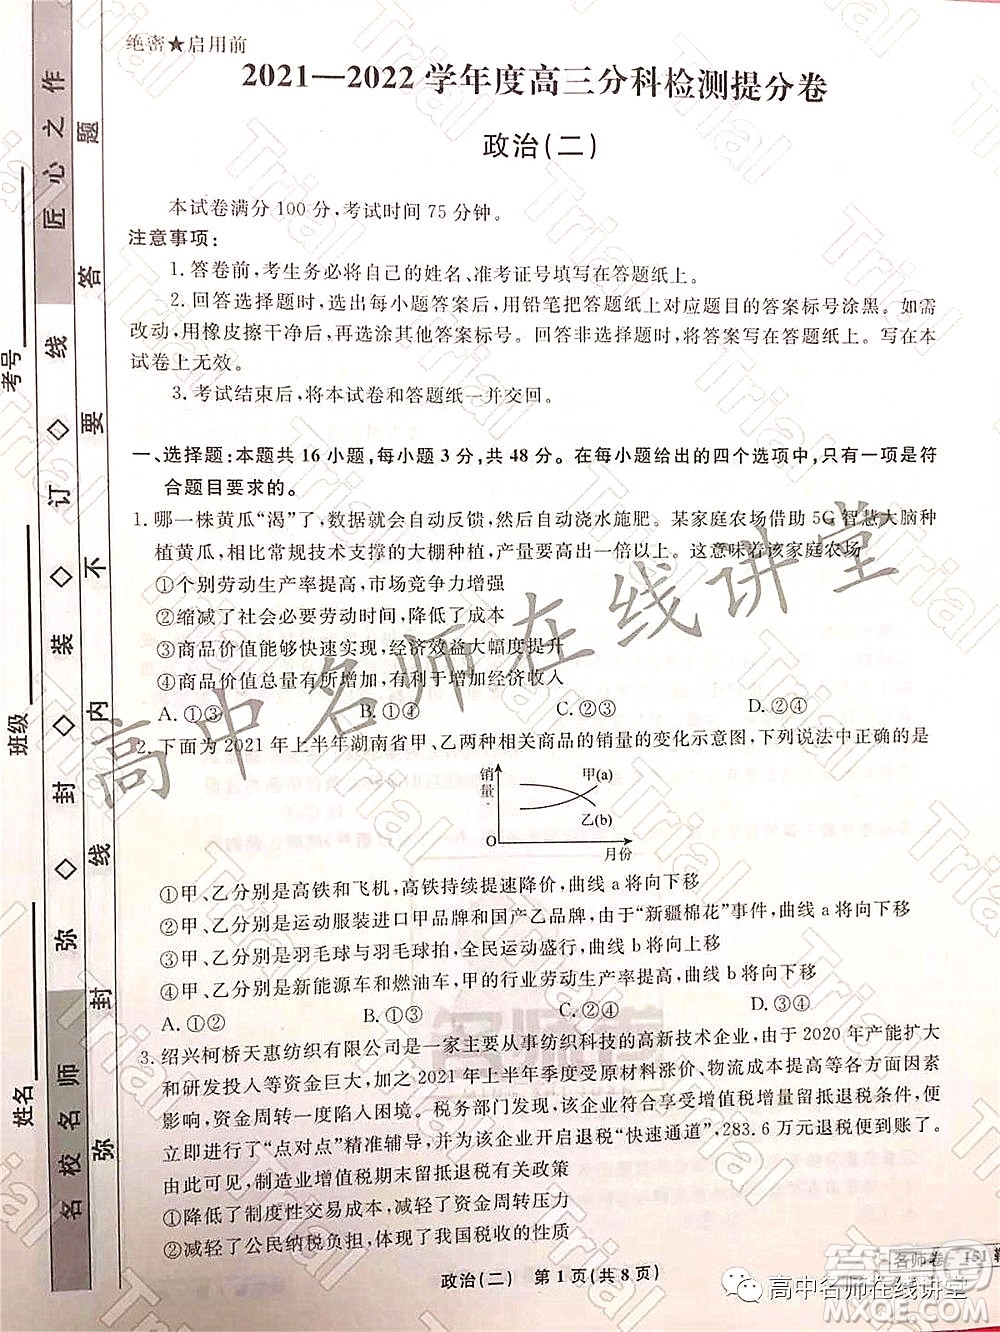 绝密★启用前
2021—2022学年度高三分科检测提分卷
政治(二)
本试卷满分100分,考试时间75分钟。
注意事项:
1. 答卷前,考生务必将自己的姓名、准考证号填写在答题纸上。
2. 回答选择题时,选出每小题答案后,用铅笔把答题纸上对应题目的答案标号涂黑。如需
改动,用橡皮擦干净后,再选涂其他答案标号。回答非选择题时,将答案写在答题纸上,写在本
试卷上无效。
3. 考试结束后,将本试卷和答题纸一并交回。
一、选择题:本题共16小题,每小题3分,共48分。在每小题给出的四个选项中,只有一项是符
合题目要求的。
1. 哪一株黄瓜“渴”了,数据就会自动反馈,然后自动浇水施肥。某家庭农场借助5G智慧大脑种
植黄瓜,相比常规技术支撑的大棚种植,产量高出一倍以上。这意味着该家庭农场
①个别劳动生产率提高,市场竞争力增强
②缩减了社会必要劳动时间,降低了成本
③商品价值能够快速实现,经济效益大幅度提升
④商品价值总量有所增加,有利于增加经济收入
A. ①③ B. ①④ C. ②③ D. ②④
2. 下面为2021年上半年湖南省甲、乙两种相关商品的销量的变化示意图,下列说法中正确的是
销量
甲(a)
乙(b)
O
月份
①甲、乙分别是高铁和飞机,高铁持续提速降价,曲线a将向下移
②甲、乙分别是运动服装进口甲品牌和国产乙品牌,由于“新疆棉花”事件,曲线a将向下移
③甲、乙分别是羽毛球与羽毛球拍,全民运动盛行,曲线b将向上移
④甲、乙分别是新能源车和燃油车,甲的行业劳动生产率提高,曲线b将向下移
A. ①② B. ①③ C. ②④ D. ③④
3. 绍兴柯桥天惠纺织有限公司是一家主要从事纺织科技的高新技术企业,由于2020年产能扩大
和研发投入等资金巨大,加之2021年上半年季度受原材料涨价、物流成本提高等因素叠加
影响,资金周转一度陷入困境。税务部门发现,该企业符合享受增值税增量留抵退税政策,便
立即进行“点对点”精准辅导,并为该企业开启退税“快速通道”,283.6万元退税款顺利到账。
由此可见,制造业增值税期末留抵退税有关政策
①降低了制度性交易成本,减轻了资金周转压力
②减轻了公民纳税负担,体现了我国税收的性质
政治(二) 第1页(共8页)
名师卷
151
匠心之作
名校名师
弥◇封◇装◇订◇线
弥封线内不要答题
考号
班级
姓名
高中名师在线讲堂
名师卷
高中名师在线讲堂
答案圈
MXQE.COM
Trial